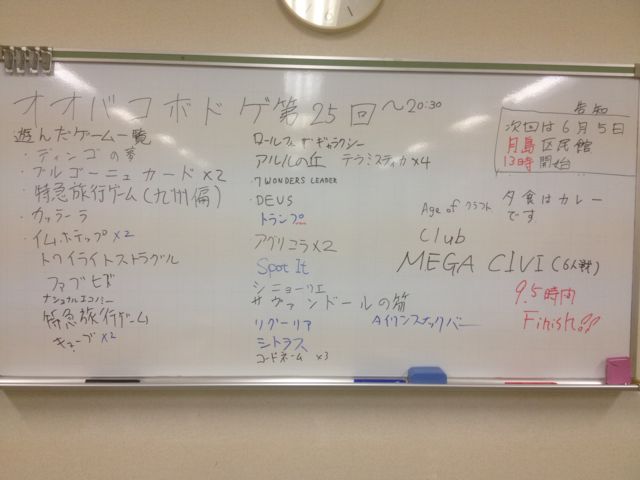 オオバコボドゲ第25回 ～20:30
遊んだゲーム一覧
・ディンゴの夢
・ブルゴーニュ カード×2
・特急旅行ゲーム(九州偏)
・カッラーラ
・イムホテップ ×2
トワイライトストラグル
ファブヒド
ナショナルエコノミー
特急旅行ゲーム
キューブ ×2
ロールフォーザギャラクシー
アルルの丘 テラミスティカ×4
・7 WONDERS LEADER
・DEUS
トランプ
アグリコラ×2
Spot It
シニョーリエ
サヴァンドールの笛
リグーリア
シトラス
コードネーム ×3
Age of クラフト
Club
MEGA CIVI (6人戦)
9.5時間
Finish!!
告知
次回は6月5日
月島区民館
13時開始
夕食はカレー
です